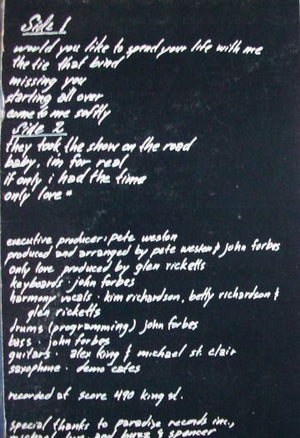 Side 1
would you like to spend your life with me
the tie that bind
missing you
starting all over
come to me softly
Side 2
they took the show on the road
baby, im for real
if only i had the time
only love *
executive producer: pete weston
produced and arranged by pete weston & john forbes
only love produced by glen ricketts
keyboards: john forbes
harmony vocals: kim richardson, betty richardson &
glen ricketts
drums (programming) john forbes
bass: john forbes
guitars: alex king & michael st. clair
saxophone: demo cates
recorded at score 490 king st.
special thanks to paradise records inc.,
michael, and buzz & spencer